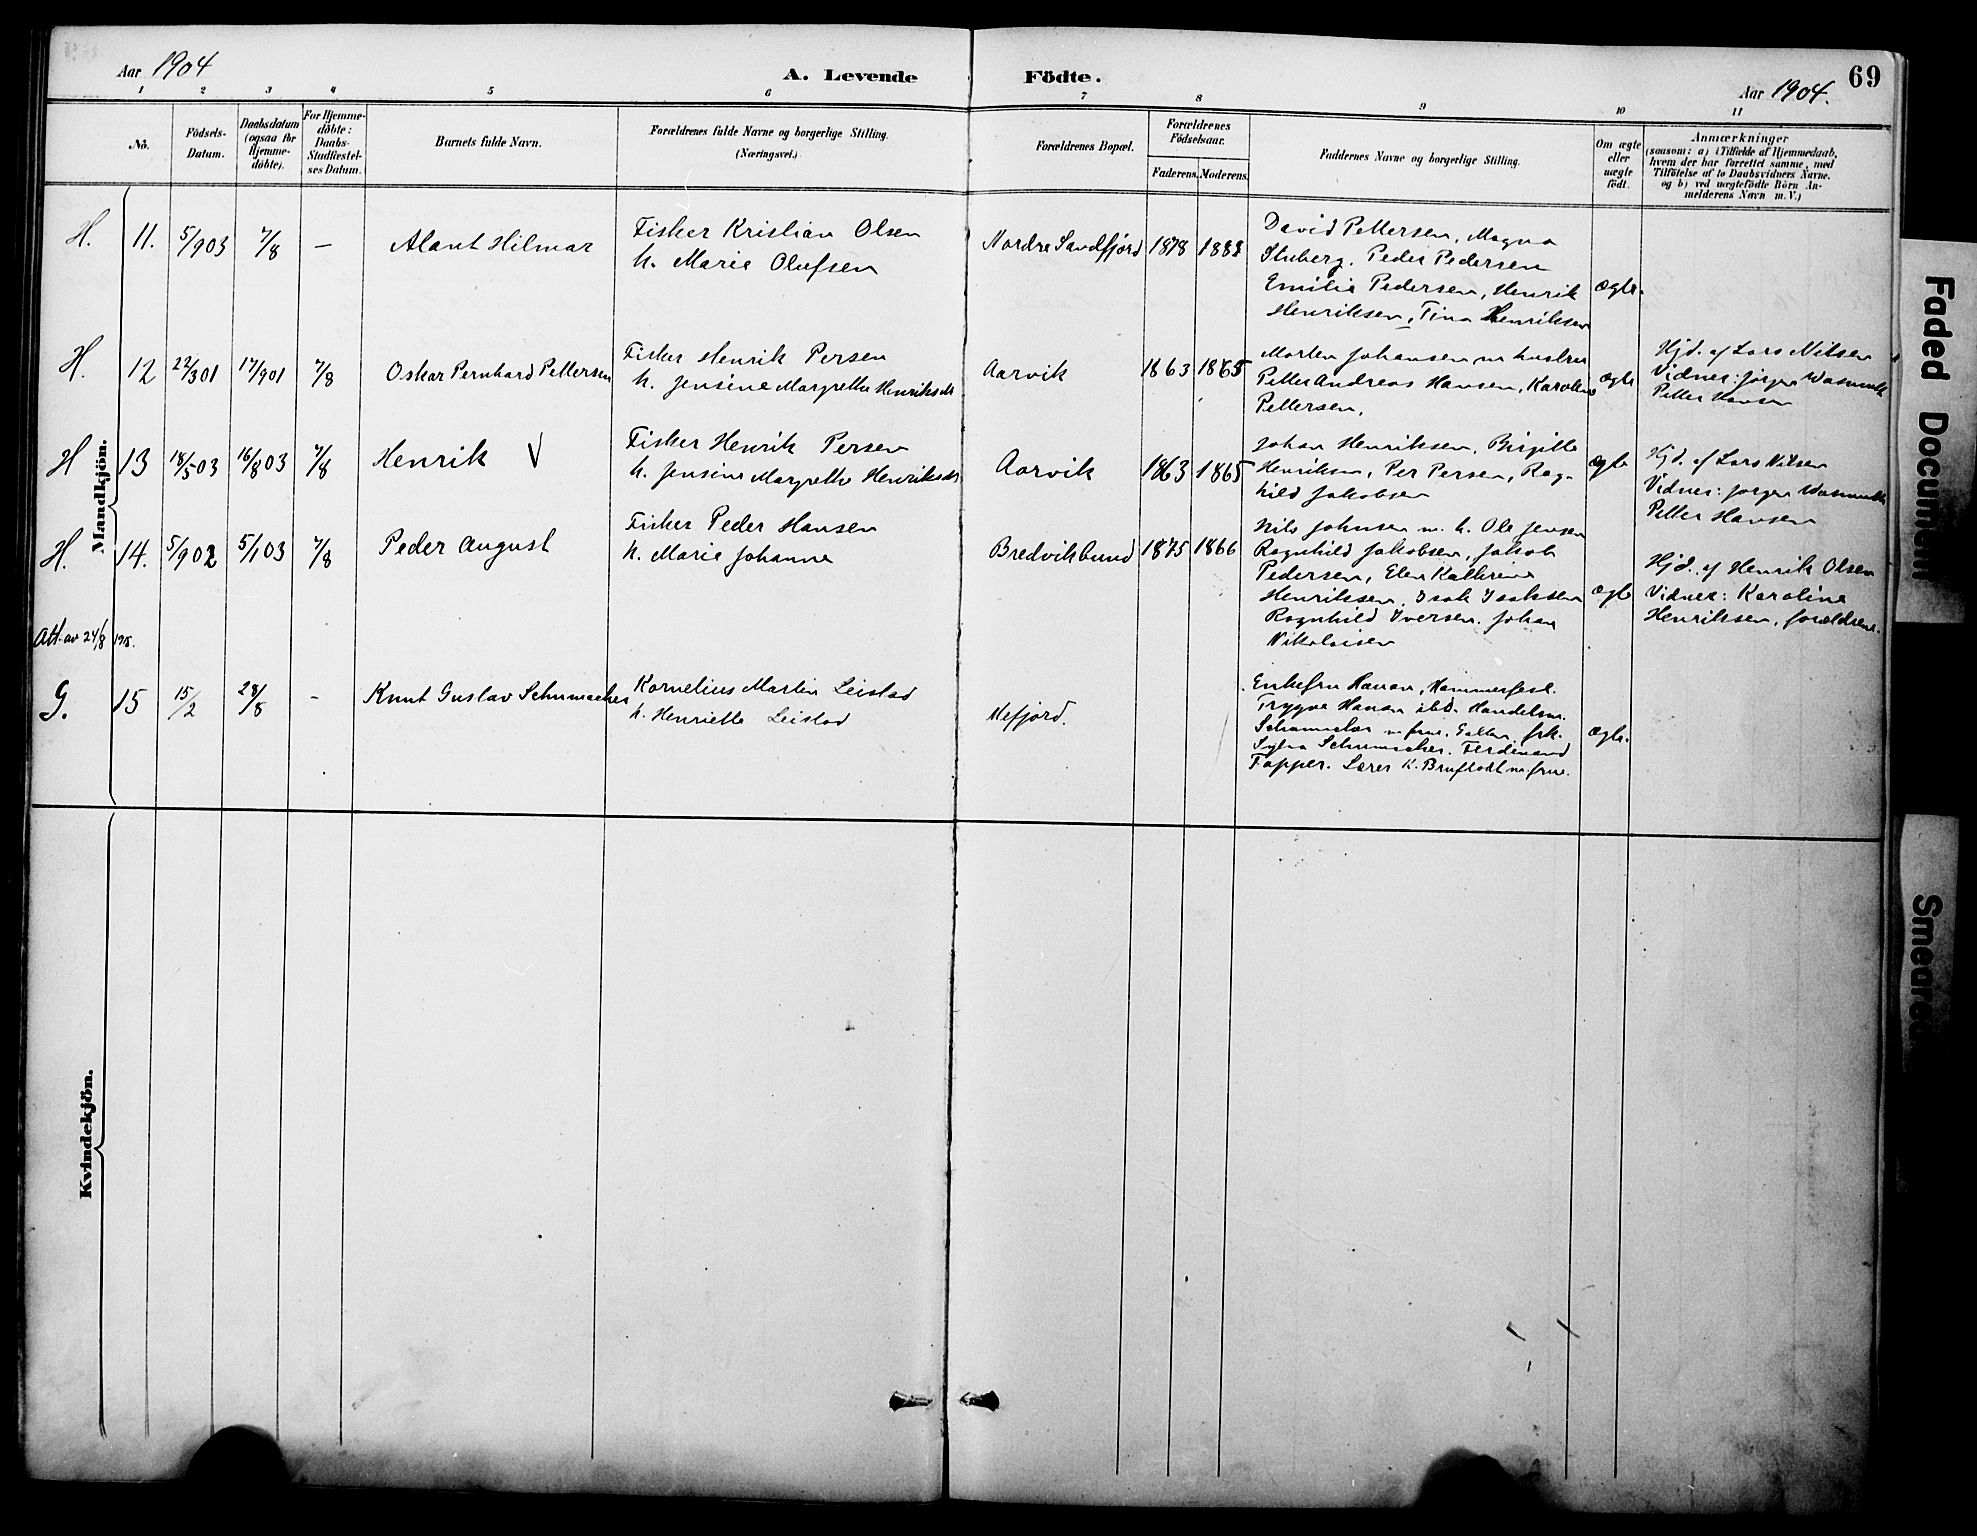 Aar 1904
A. Levende Födte.
Aar 1904.
69
1 2 3 4 5 6 7 8 9 10 11
No.
Födsels-Datum.
Daabsdatum (ogsaa for Hjemme-döbte).
For Hjemme-döbte: Daabs-Stadfæstel-ses Datum.
Barnets fulde Navn.
Forældrenes fulde Navne og borgerlige Stilling.
(Næringsvei.)
Forældrenes Bopæl.
Forældrenes Födselsaar.
Faderens. Moderens.
Faddernes Navne og borgerlige Stilling.
Om ægte eller uægte födt.
Anmærkninger
(saasom: a) i Tilfælde af Hjemmedaab,
hvem der har forrettet samme, med
Tilföielse af to Daabsvidners Navne.
og b) ved uægtefödte Börn An-
melderens Navn m. V.)
Mandkjön.
H. 11. 5/9 03 7/8 — Alant Hilmar
Fisker Kristian Olsen
h. Marie Olufsen
Nordre Sandfjord 1878 1881
David Pettersen, Magna
Stuberg. Peder Pedersen
Emilie Pedersen, Henrik
Henriksen, Tina Henriksen
ægte.
H. 12 22/3 01 17/9 01 7/8 Oskar Pernhard Pettersen
Fisker Henrik Persen
h. Jensine Margrethe Henriksdt
Aarvik 1863 1865
Morten Johansen m hustru
Petter Andreas Hansen, Karoline
Pettersen.
ægte
Hjd. af Lars Nilsen
Vidner: Jörgen
Petter Hansen
H 13 18/5 03 16/8 03 7/8 Henrik V
Fisker Henrik Persen
h. Jensine Margrethe Henriksdt
Aarvik 1863 1865
Johan Henriksen, Birgitte
Henriksen, Per Persen, Rag-
hild Jakobsen
ægte
Hjd. af Lars Nilsen
Vidner: Jörgen
Petter Hansen
H. 14. 5/9 02 5/1 03 7/8 Peder August
Fisker Peder Hansen
h. Marie Johanne
Bredvikbund 1875 1866
Nils Johnsen m. h. Ole Jensen
Ragnhild Jakobsen, Jakob
Pedersen, Elen Kathrine
Henriksen, Isak Isaksen
Ragnhild Iversen. Johan
Nikolaisen
ægte
Hjd. af Henrik Olsen
Vidner: Karoline
Henriksen, forældrene.
Att. av 24/8 1918.
G. 15 15/2 28/8 - Knut Gustav Schumacher
Kornelius Martin Leistad
h. Henriette Leistad
Mefjord.
Enkefru Hanan, Hammerfest.
Trygve Hanan ibd. Handelsm.
Schumacher m frue, frk.
Sylva Schumacher. Ferdinand
Tapper. Lærer K. m frue.
ægte.
Kvindekjön.
Faded Document
Smeared